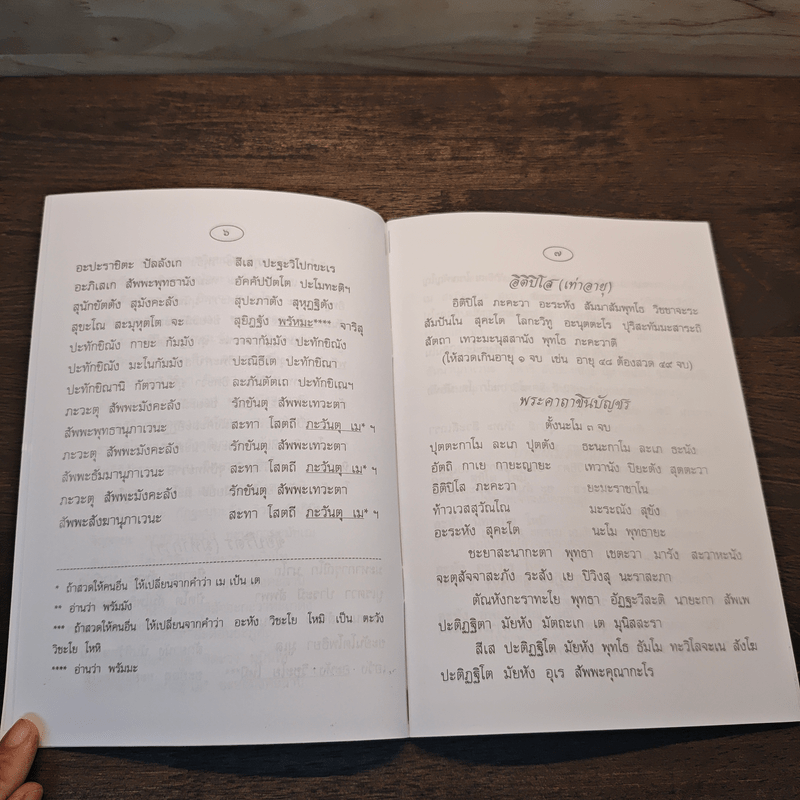 ๖
อะปะราชิตะ ปัลลังเก สีเส ปะฐะวิโปกขะเร
อะภิเสเก สัพพะพุทธานัง อัคคัปปัตโต ปะโมทะติฯ
สุนักขัตตัง สุมังคะลัง สุปะภาตัง สุหุฏฐิตัง
สุขะโณ สะมุหุตโต จะ สุยิฏฐัง พรัหมะ**** จาริสุ
ปะทักขิณัง กายะ กัมมัง วาจากัมมัง ปะทักขิณัง
ปะทักขิณัง มะโนกัมมัง ปะณิธีเต ปะทักขิณา
ปะทักขิณานิ กัตวานะ ละภันตัตเถ ปะทักขิเณฯ
ภะวะตุ สัพพะมังคะลัง รักขันตุ สัพพะเทวะตา
สัพพะพุทธานุภาเวนะ สะทา โสตถี ภะวันตุ เม* ฯ
ภะวะตุ สัพพะมังคะลัง รักขันตุ สัพพะเทวะตา
สัพพะธัมมานุภาเวนะ สะทา โสตถี ภะวันตุ เม* ฯ
ภะวะตุ สัพพะมังคะลัง รักขันตุ สัพพะเทวะตา
สัพพะสังฆานุภาเวนะ สะทา โสตถี ภะวันตุ เม* ฯ
* ถ้าสวดให้คนอื่น ให้เปลี่ยนจากคำว่า เม เป็น เต
** อ่านว่า พรัมมัง
*** ถ้าสวดให้คนอื่น ให้เปลี่ยนจากคำว่า อะหัง วิชะโย โหมิ เป็น ตะวัง
วิชะโย โหหิ
**** อ่านว่า พรัมมะ
๗
อิติปิโส (เท่าอายุ)
อิติปิโส ภะคะวา อะระหัง สัมมาสัมพุทโธ วิชชาจะระ
สัมปันโน สุคะโต โลกะวิทู อะนุตตะโร ปุริสะทัมมะสาระถิ
สัตถา เทวะมะนุสสานัง พุทโธ ภะคะวาติ
(ให้สวดเกินอายุ ๑ จบ เช่น อายุ ๔๘ ต้องสวด ๔๙ จบ)
พระคาถาชินบัญชร
ตั้งนะโม ๓ จบ
ปุตตะกาโม ละเภ ปุตตัง ธะนะกาโม ละเภ ธะนัง
อัตถิ กาเย กายะญายะ เทวานัง ปิยะตัง สุตตะวา
อิติปิโส ภะคะวา ยะมะราชาโน
ท้าวเวสสุวัณโณ มะระณัง สุขัง
อะระหัง สุคะโต นะโม พุทธายะ
ชะยาสะนากะตา พุทธา เชตะวา มารัง สะวาหะนัง
จะตุสัจจาสะภัง ระสัง เย ปิวิงสุ นะราสะภา
ตัณหังกะราทะโย พุทธา อัฏฐะวีสะติ นายะกา สัพเพ
ปะติฏฐิตา มัยหัง มัตถะเก เต มุนิสสะรา
สีเส ปะติฏฐิโต มัยหัง พุทโธ ธัมโม ทะวิโลจะเน สังโฆ
ปะติฏฐิโต มัยหัง อุเร สัพพะคุณากะโร